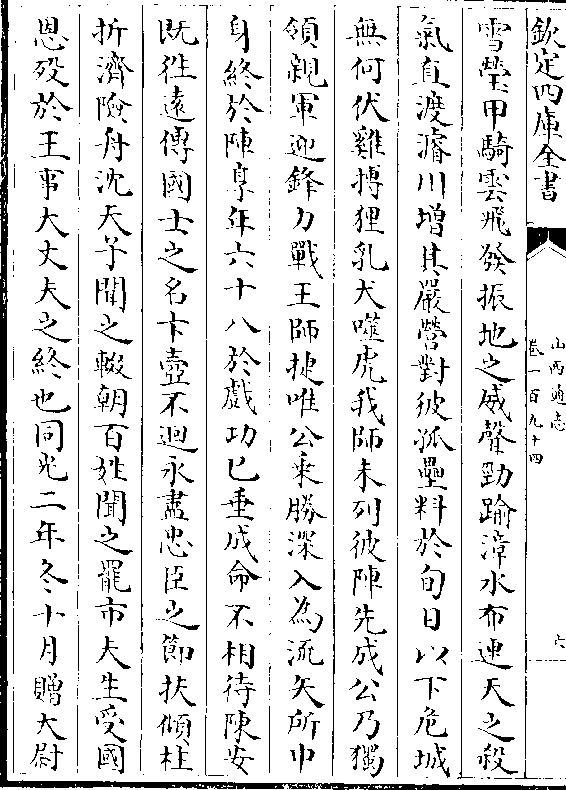 欽定四庫全書
山西通志
卷一百九十四
六
雪瑩甲騎雲飛發振地之威聲勁踰漳水布連天之殺
氣直渡濬川增其嚴營對彼孤壘料於旬日以下危城
無何伏雞搏狸乳犬噬虎我師未列彼陣先成公乃獨
領親軍迎鋒力戰王師捷唯公乘勝深入為流矢所中
身終於陣享年六十八於戲功已垂成命不相待陳安
既徃遠傳國士之名卞壼不迴永盡忠臣之節扶傾柱
折濟險舟沈天子聞之輟朝百姓聞之罷市夫生受國
恩歿於王事大丈夫之終也同光二年冬十月贈大尉